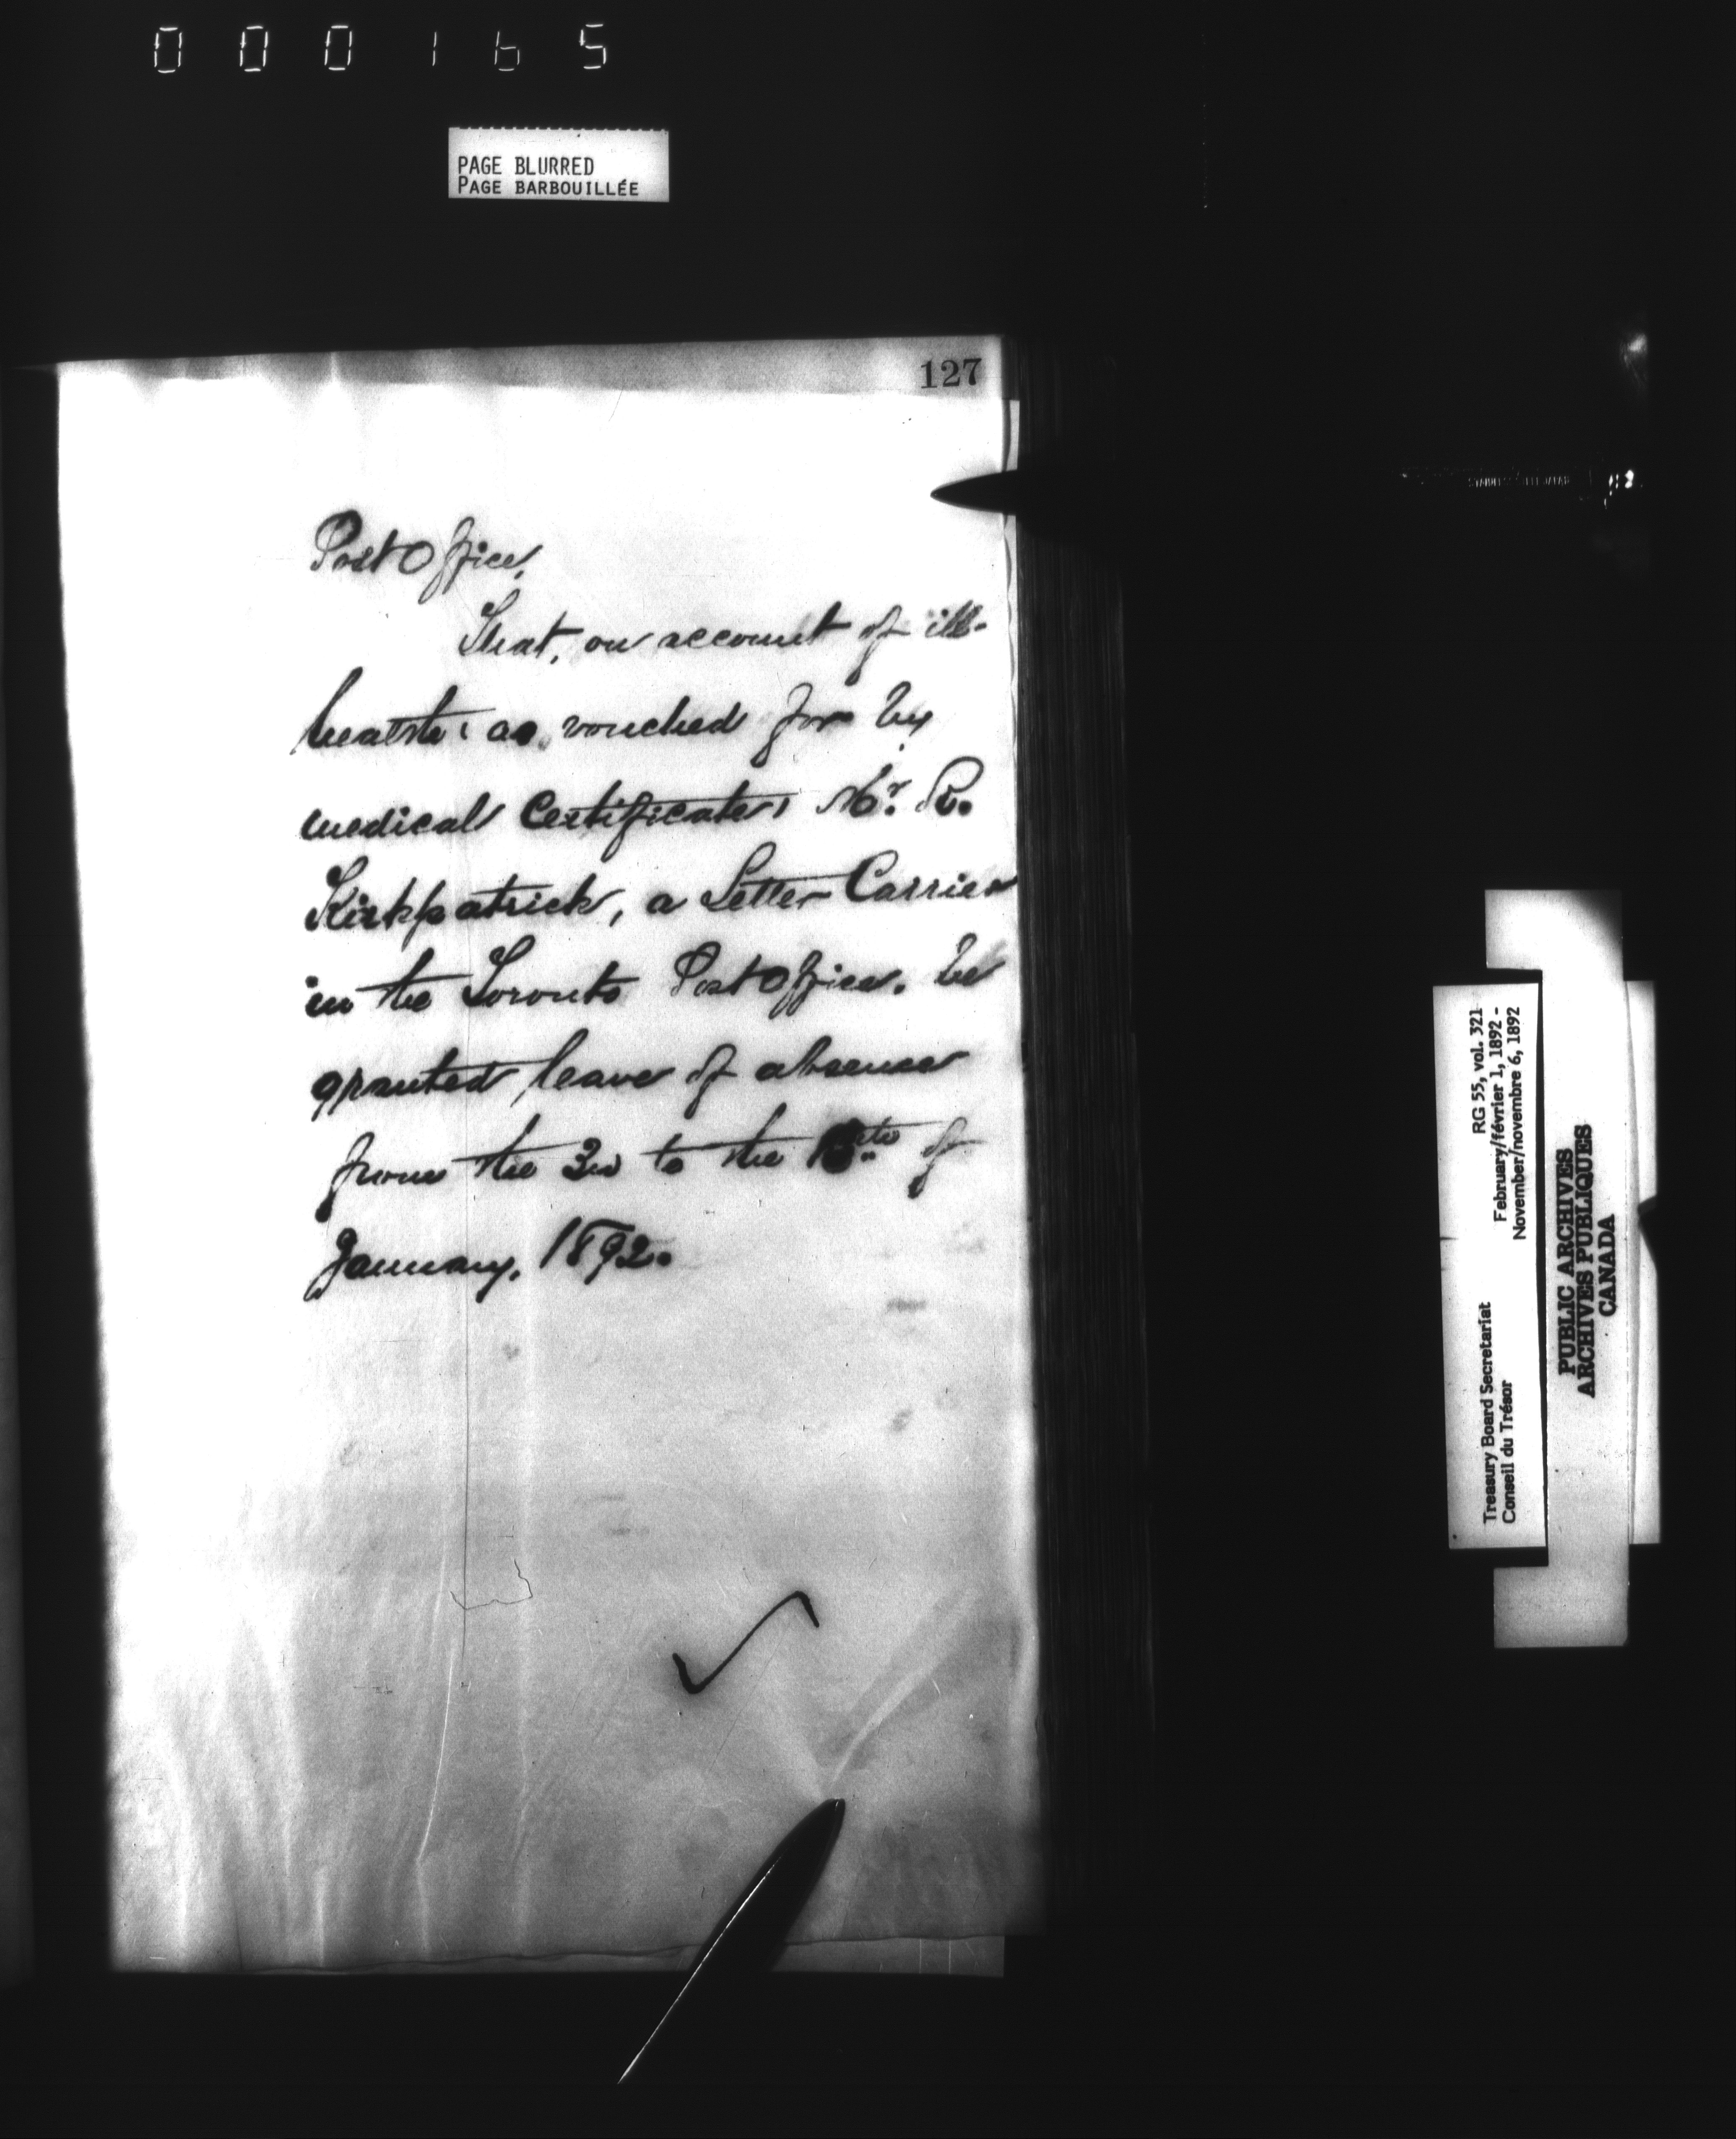 000165
PAGE BLURRED
PAGE BARBOUILLÉE
127
Post Office,
That, on account of ill-
health, as vouched for by
medical Certificate, Mr. R.
Kirkpatrick, a Letter Carrier
in the Toronto Post Office, be
granted leave of absence
from the 3rd to the of
January, 1892.
RG 55, vol. 321
February/février 1, 1892 -
November/novembre 6, 1892
Treasury Board Secretariat
Conseil du Trésor
PUBLIC ARCHIVES
ARCHIVES PUBLIQUES
CANADA